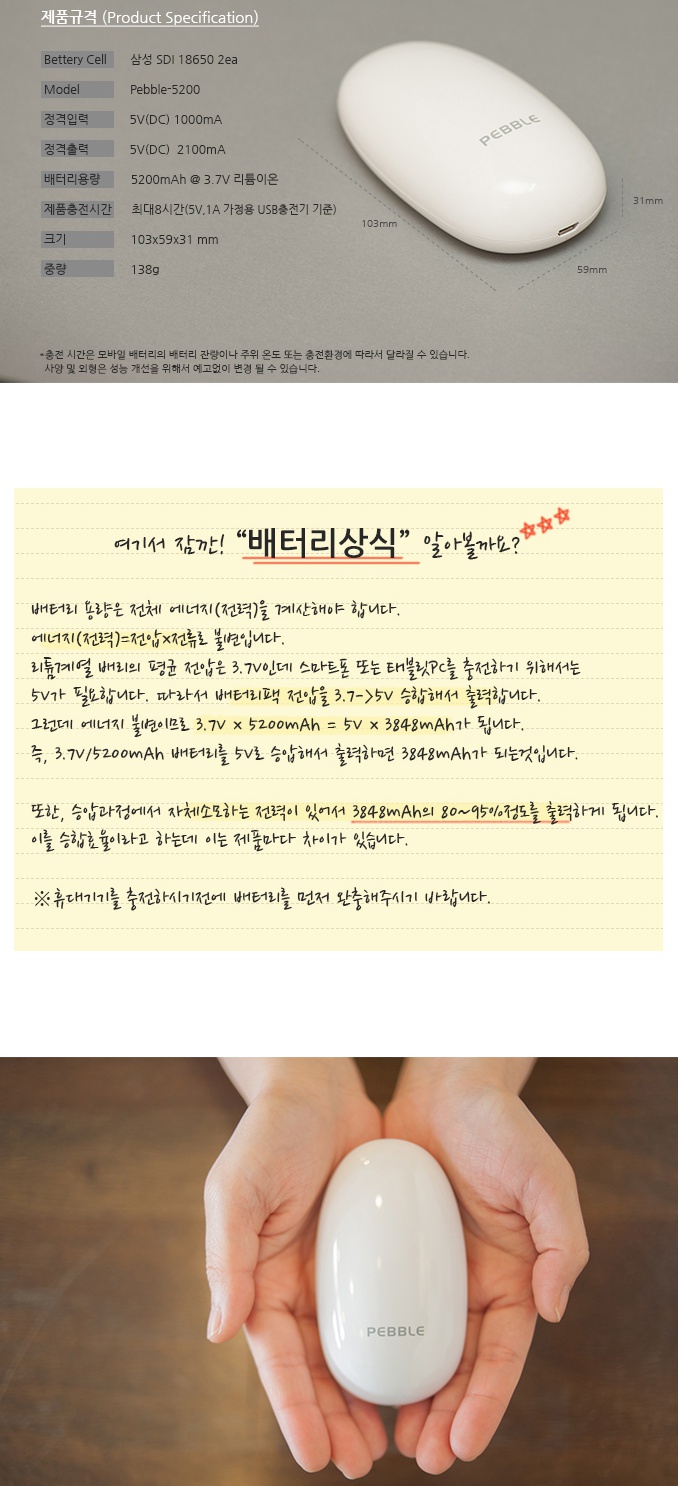 제품규격 (Product Specification)
Bettery Cell 삼성 SDI 18650 2ea
Model Pebble-5200
정격입력 5V(DC) 1000mA
정격출력 5V(DC) 2100mA
배터리용량 5200mAh @ 3.7V 리튬이온
제품충전시간 최대8시간(5V,1A 가정용 USB충전기 기준)
크기 103x59x31 mm
중량 138g
PEBBLE
31mm
103mm
59mm
*충전 시간은 모바일 배터리의 배터리 잔량이나 주위 온도 또는 충전환경에 따라서 달라질 수 있습니다.
사양 및 외형은 성능 개선을 위해서 예고없이 변경 될 수 있습니다.
여기서 잠깐! “배터리상식” 알아볼까요?
배터리 용량은 전체 에너지(전력)을 계산해야 합니다.
에너지(전력)=전압x전류로 불변입니다.
리튬계열 배리의 평균 전압은 3.7V인데 스마트폰 또는 태블릿PC를 충전하기 위해서는
5V가 필요합니다. 따라서 배터리팩 전압을 3.7->5V 승합해서 출력합니다.
그런데 에너지 불변이므로 3.7V x 5200mAh = 5V x 3848mAh가 됩니다.
즉, 3.7V/5200mAh 배터리를 5V로 승압해서 출력하면 3848mAh가 되는것입니다.
또한, 승압과정에서 자체소모하는 전력이 있어서 3848mAh의 80~95%정도를 출력하게 됩니다.
이를 승합효율이라고 하는데 이는 제품마다 차이가 있습니다.
※휴대기기를 충전하시기전에 배터리를 먼저 완충해주시기 바랍니다.
PEBBLE